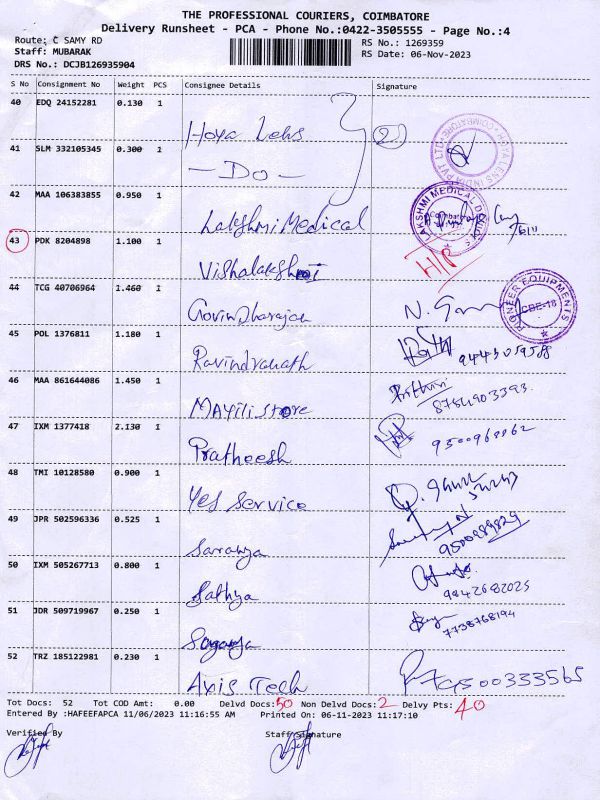 THE PROFESSIONAL COURIERS, COIMBATORE
Delivery Runsheet - PCA - Phone No.:0422-3505555 - Page No.:4
Route: C SAMY RD
RS No.: 1269359
Staff: MUBARAK
RS Date: 06-Nov-2023
DRS No.: DCJB126935904
S No Consignment No Weight PCS Consignee Details Signature
40 EDQ 24152281 0.130 1 Hoya Lens
41 SLM 332105345 0.300 1 - Do -
HOYA LENS INDIA PVT LTD COIMBATORE
42 MAA 106383855 0.950 1 Lakshmi Medical
LAKSHMI MEDICAL
43 PDK 8204898 1.100 1 Vishalakshmi
44 TCG 40706964 1.460 1 Govindharajan N.
PIONEER EQUIPMENTS CBE-18
45 POL 1376811 1.180 1 Ravindranath 9443059588
46 MAA 861644086 1.450 1 Mayili store Prithivi 8754903393
47 IXM 1377418 2.130 1 Pratheesh
48 TMI 10128580 0.900 1 Yes Service
49 JPR 502596336 0.525 1 Saranya
50 IXM 505267713 0.800 1 Sathya 9842682025
51 JDR 509719967 0.250 1 7738768194
52 TRZ 185122981 0.230 1 Axis Tech
Tot Docs: 52 Tot COD Amt: 0.00 Delvd Docs: 50 Non Delvd Docs: 2 Delvy Pts: 40
Entered By :HAFEEFAPCA 11/06/2023 11:16:55 AM Printed On: 06-11-2023 11:17:10
Verified By Staff Signature